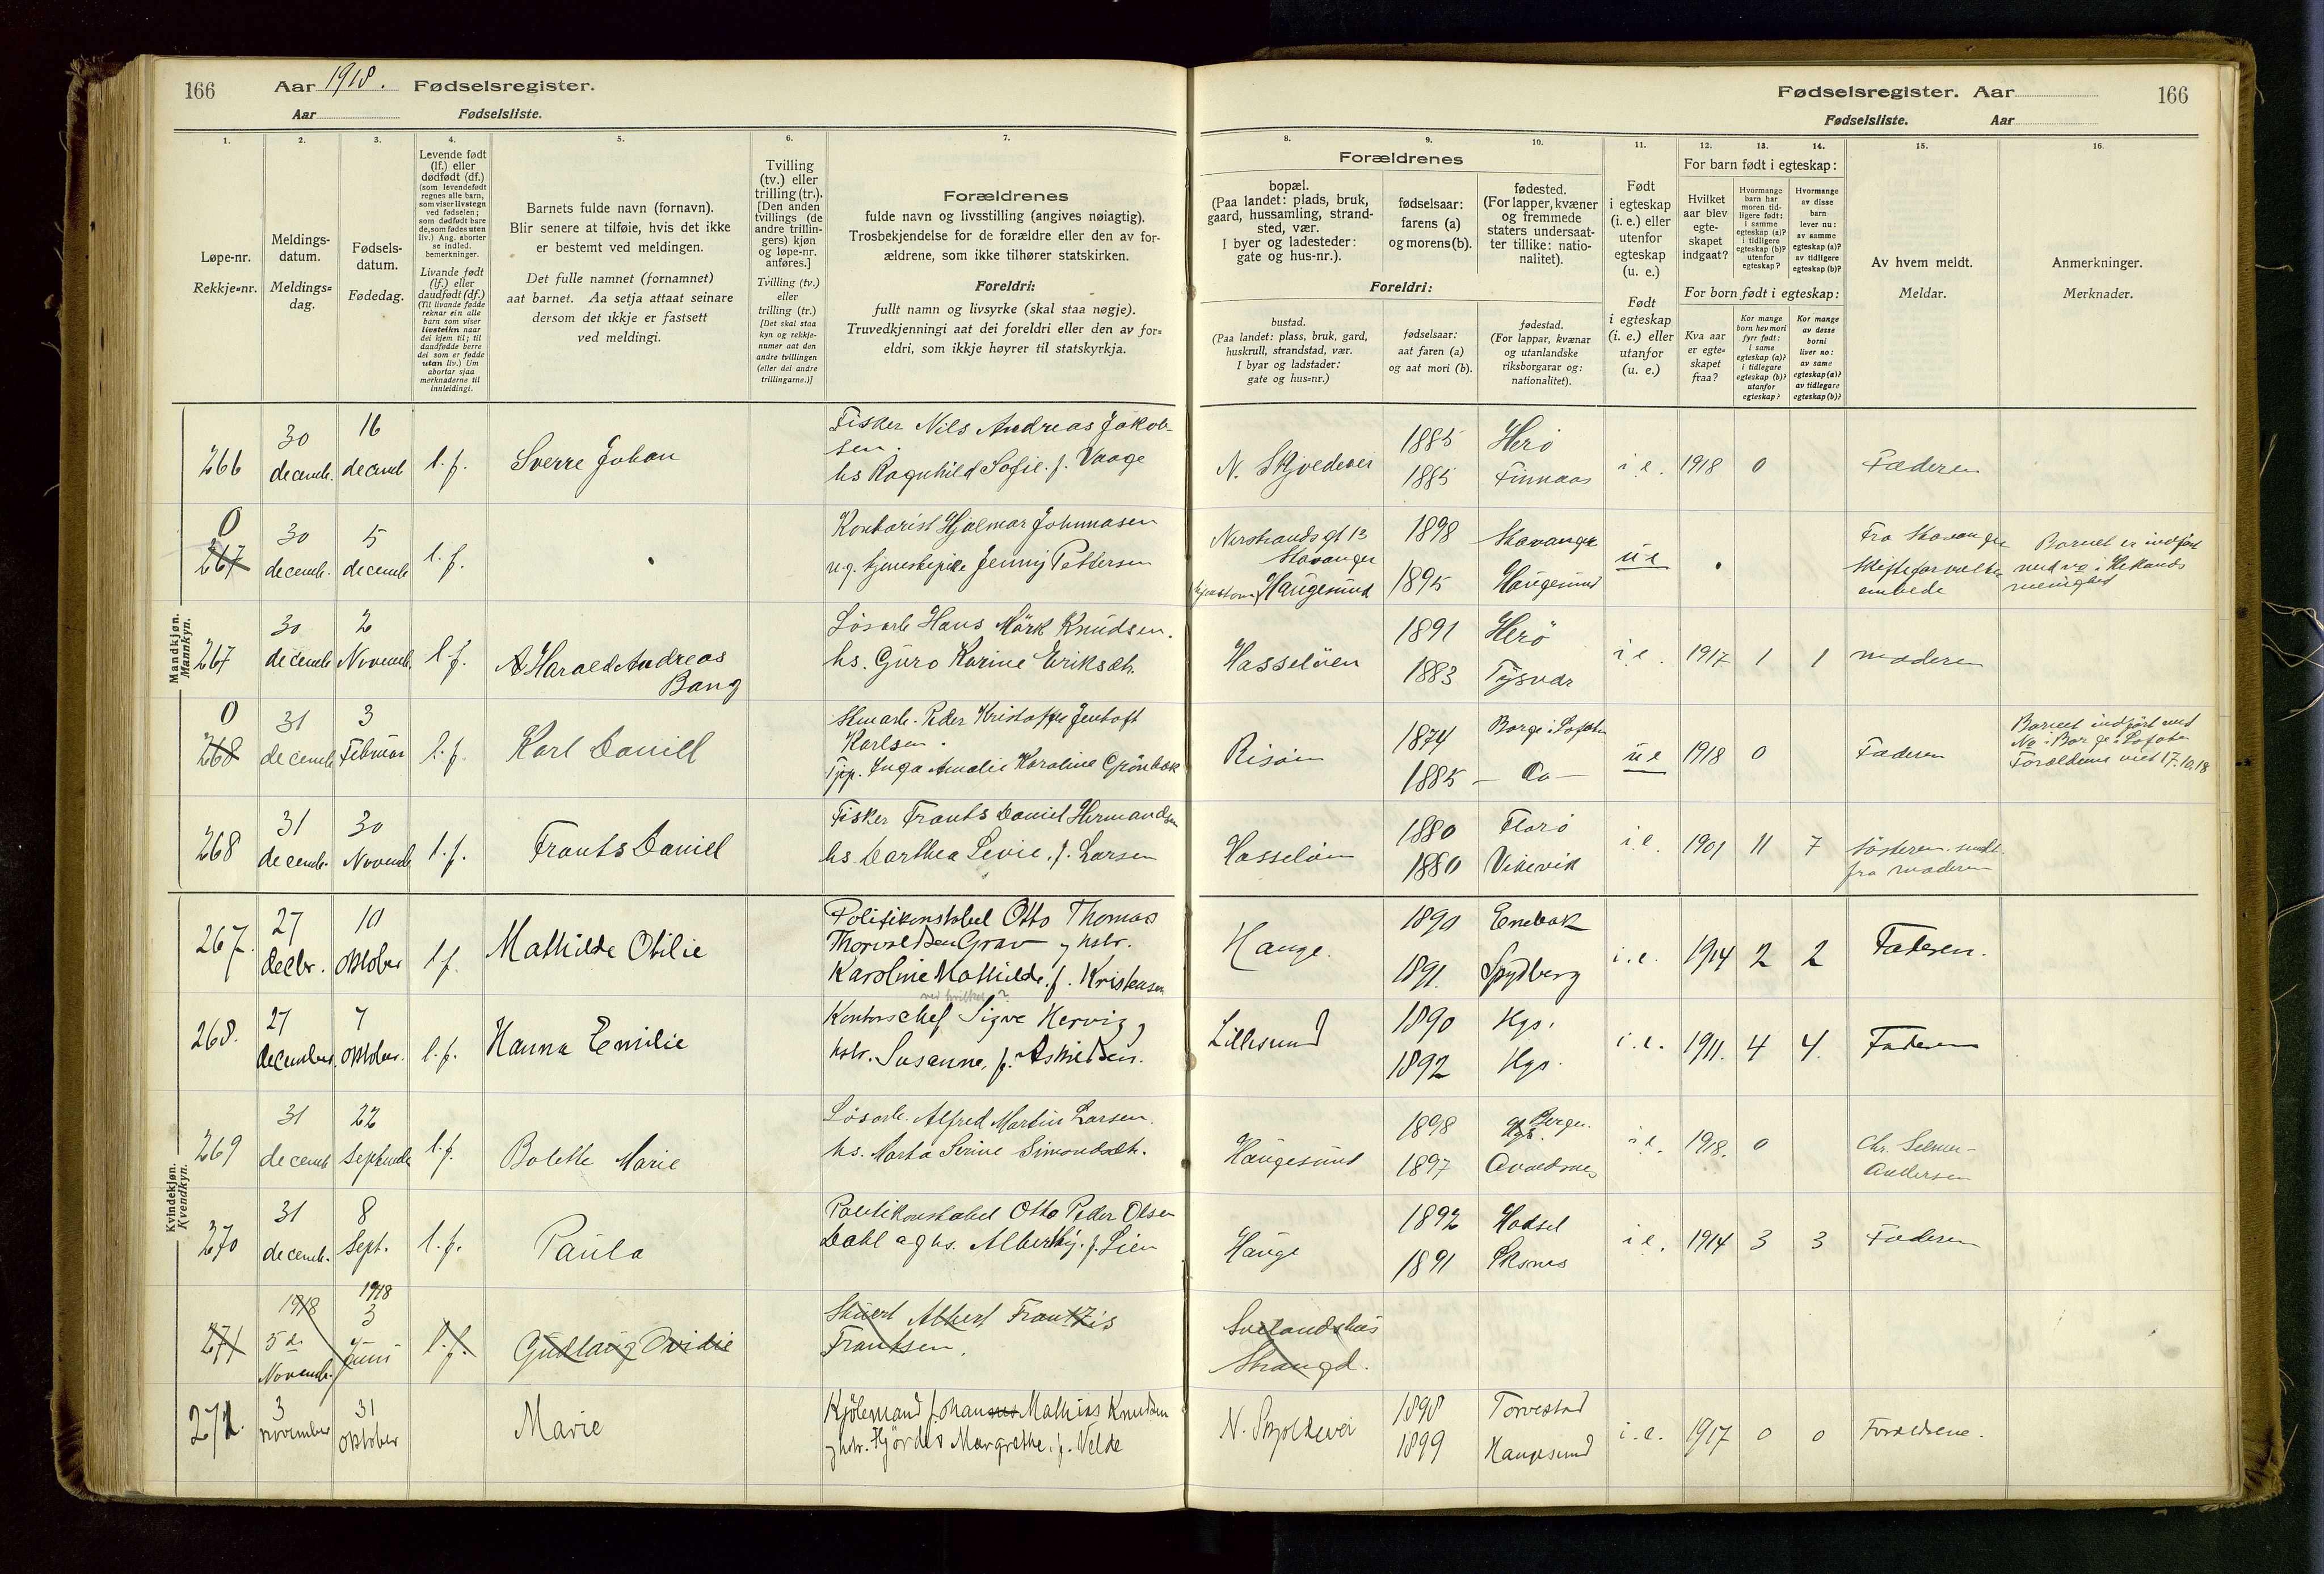 166
Aar 1918. Fødselsregister.
Aar Fødselsliste.
Fødselsregister. Aar
166
Fødselsliste. Aar
1.
Løpe-nr.
Rekkje-nr.
2.
Meldings-
datum.
Meldings-
dag.
3.
Fødsels-
datum.
Fødedag.
4.
Levende født
(lf.) eller
dødfødt (df.)
(som levendefødt
regnes alle barn,
som viser livstegn
ved fødselen;
som dødfødt bare
de, som fødes uten
liv.) Ang. aborter
se indled.
bemerkninger.
Livande født
(lf.) eller
daudfødt (df.)
(Til livande fødde
reknar ein alle
barn som viser
livsteikn naar
dei kjem til; til
daudfødde berre
dei som er fødde
utan liv.) Um
abortar sjaa
merknaderne til
innleidingi.
5.
Barnets fulde navn (fornavn).
Blir senere at tilføie, hvis det ikke
er bestemt ved meldingen.
Det fulle namnet (fornamnet)
aat barnet. Aa setja attaat seinare
dersom det ikkje er fastsett
ved meldingi.
6.
Tvilling
(tv.) eller
trilling (tr.).
[Den anden
tvillings (de
andre trillin-
gers) kjøn
og løpe-nr.
anføres.]
Tvilling (tv.)
eller
trilling (tr.)
[Det skal staa
kyn og rekkje-
numer aat den
andre tvillingen
(eller dei andre
trillingarne.)]
7.
Forældrenes
fulde navn og livsstilling (angives nøiagtig).
Trosbekjendelse for de forældre eller den av for-
ældrene, som ikke tilhører statskirken.
Foreldri:
fullt namn og livsyrke (skal staa nøgje).
Truvedkjenningi aat dei foreldri eller den av for-
eldri, som ikkje høyrer til statskyrkja.
Forældrenes
8.
bopæl.
(Paa landet: plads, bruk,
gaard, hussamling, strand-
sted, vær.
I byer og ladesteder:
gate og hus-nr.).
9.
fødselsaar:
farens (a)
og morens (b).
10.
fødested.
(For lapper, kvæner
og fremmede
staters undersaat-
ter tillike: natio-
nalitet).
Foreldri:
bustad.
(Paa landet: plass, bruk, gard,
huskrull, strandstad, vær.
I byar og ladstader:
gate og hus-nr.)
fødselsaar:
aat faren (a)
og aat mori (b).
fødestad.
(For lappar, kvænar
og utanlandske
riksborgarar og:
nationalitet).
11.
Født
i egteskap
(i. e.) eller
utenfor
egteskap
(u. e.)
Født
i egteskap
(i. e.) eller
utanfor
(u. e.)
12. 13. 14.
For barn født i egteskap:
Hvilket
aar blev
egte-
skapet
indgaat?
Hvormange
barn har
moren tid-
ligere født:
i samme
egteskap (a)?
i tidligere
egteskap (b)?
utenfor
egteskap?
Hvormange
av disse
barn
lever nu:
av samme
egteskap (a)?
av tidligere
egteskap (b)?
For born født i egteskap:
Kva aar
er egte-
skapet
fraa?
Kor mange
born hev mori
fyrr født:
i same
egteskap (a)?
i tidlegare
egteskap (b)?
utanfor
egteskap?
Kor mange
av desse
borni
liver no:
av same
egteskap (a)?
av tidlegare
egteskap (b)?
15.
Av hvem meldt.
Meldar.
16.
Anmerkninger.
Merknader.
Mandkjøn.
Mannkyn.
266 30 decemb. 16 decemb l.f. Sverre Johan
Fisker Nils Andreas Jakob-
sen.
hs Ragnhild Sofie f. Vaage
N. Skjoldevei 1885 Herö i e. 1918 0 Faderen
1885 Finnaas
0
267 30 decemb. 5 decemb l.f.
Kontorist Hjalmar Johnnasen
u.g. tjenestepike Jenny Pettersen
Nerstrands gt 13
Stavanger
Haugesund
1898 Stavanger
1895 Haugesund
u e
Fra Stavanger
Skifteforvalter
embede
Barnet er indført
med no i Hetlands
menighed
267 30 decemb 2 Novemb. l.f. Harald Andreas
Bang
Løsarb Hans Mårk Knudsen.
hs. Guro Karine Eriksdtr.
Hasseløen 1891 Herö i e. 1917 1 1 moderen
1883 Tysvær
0
268 31 decemb 3 Februar l.f. Karl Daniell
Peder Kristoffer Jentoft
Karlsen.
Inga Amalie Karoline Grønbæk
Risøin 1874 Borge i Lofoten u e 1918 0 Faderen
1885 — Do —
Barnet indført med
No i Borge i Lofoten
Forældrene viet 17.10.18
268 31 decemb. 30 Novemb l.f. Frants Daniel
Fisker Frants Daniel Hermandsen
hs. Darthea Sevie. f. Larsen
Hasseløen 1880 Florö i.e. 1901 11 7 Søsteren. sendt
1880 Vikevik fra moderen
Kvindekjøn.
Kvendkyn.
267. 27 decbr. 10 oktober l f. Mathilde Otilie
Politikonstabel Otto Thomas
Thorvaldsen Grav og hstr.
Karoline Mathilde, f. Kristensen
Hauge. 1890 Enebak i.e. 1914 2 2 Faderen.
1891. Spydberg
268. 27 december. 7 oktober. l.f. Hanna Emilie
Kontorschef Sigve Hervig
hstr. Susanne, f. Askildsen.
Lillesund 1890 Hgs. i.e. 1911. 4 4. Faderen
1892 Hgs.
269 31 decemb 22 Septemb l.f. Bolette Marie
Løsarb. Alfred Martin Larsen.
hs. Marta Serine Simonsdtr.
Haugesund 1898 Bergen. i e. 1918. 0 Chr. Selmer-
1897 Avaldsnes Andersen
270 31 decemb. 8 Sept. l.f. Paula
Politikonstabel Otto Peder Olsen
Dahl og hs. Alberthy. f. Lien
Hauge 1892 Hadsel i e. 1914 3 3 Faderen
1891
271 1918 5 Novemb. 1918 3 Juni l.f. Gudlaug Ovidie
Stuert Albert Frantzis
Frantsen.
Sveiandshus
Strandgd.
272. 3 november 31 oktober Marie
Kjølemand Johannes Mathias Knudsen
og hstr. Hjørdis Margrethe, f. Velde
N. Skjoldevei 1898 Torvestad i.e. 1917 0 0 Forældrene.
1899 Haugesund